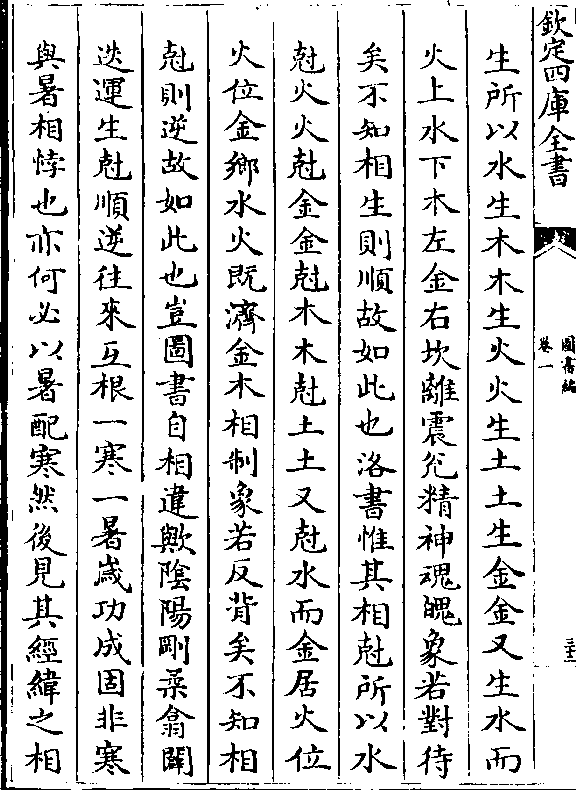 欽定四庫全書
圖書編
卷一
生所以水生木木生火火生土土生金金又生水而
火上水下木左金右坎離震兊精神魂魄象若對待
矣不知相生則順故如此也洛書惟其相尅所以水
尅火火尅金金尅木木尅土土又尅水而金居火位
火位金鄉水火既濟金木相制象若反背矣不知相
尅則逆故如此也豈圖書自相違歟陰陽剛柔翕闢
迭運生尅順逆往來互根一寒一暑歲功成固非寒
與暑相悖也亦何必以暑配寒然後見其經緯之相